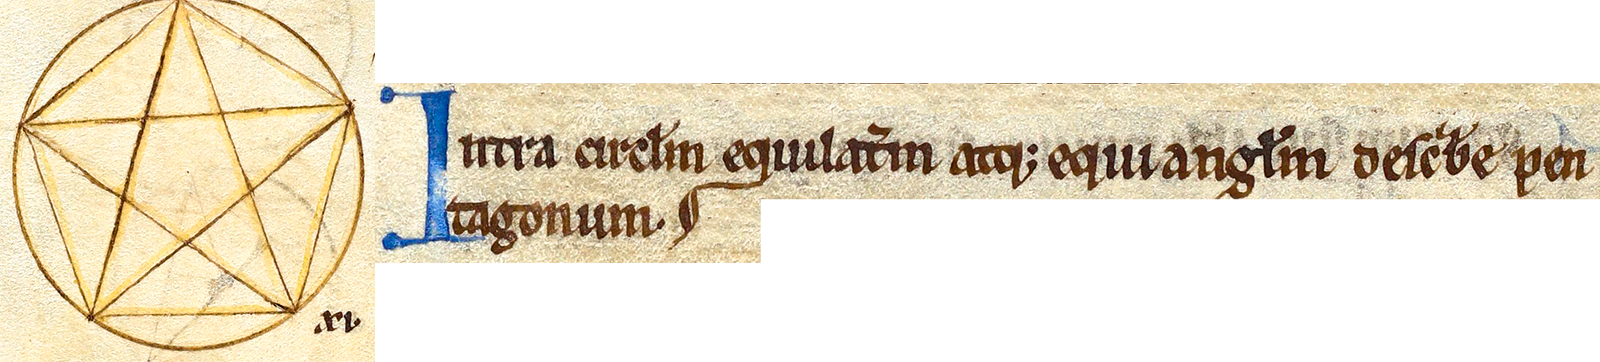 Intra circl̄m equilat̄m atq; equianglm̄ desc̄be pen
tagonum.
xi.